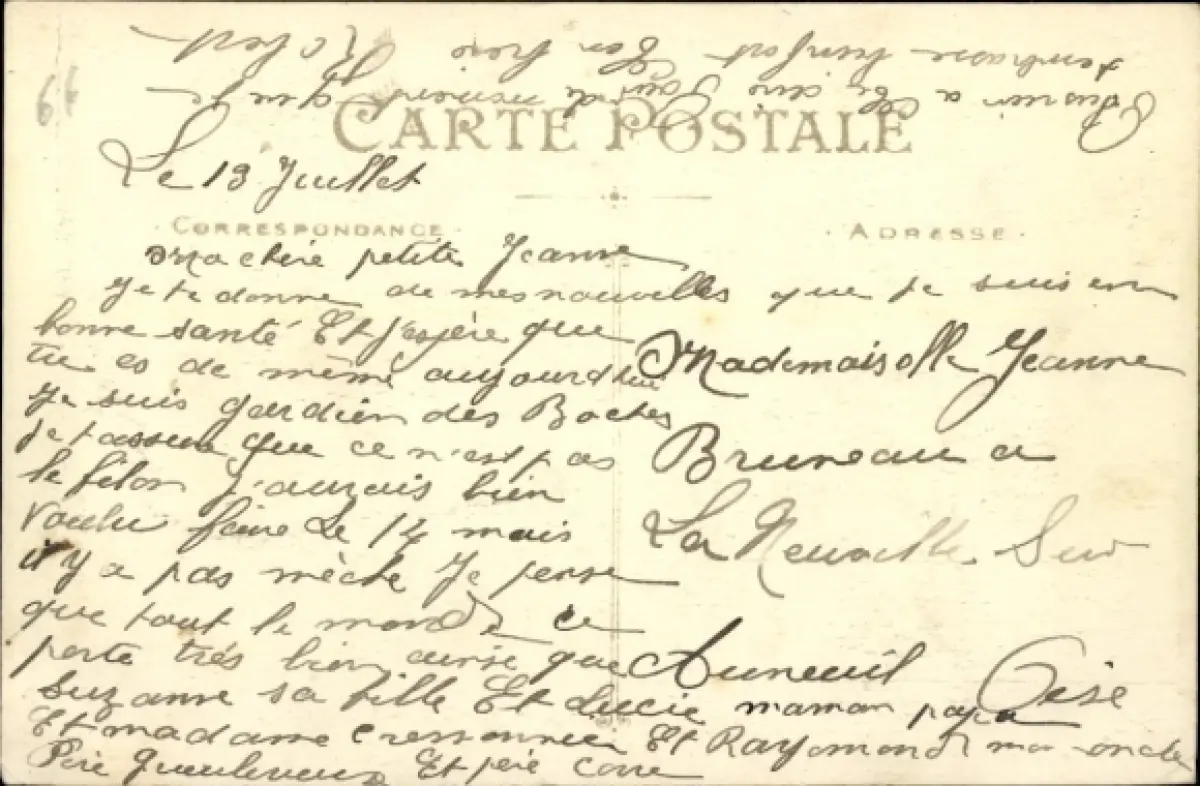 CARTE POSTALE
Le 13 Juillet
CORRESPONDANCE
ADRESSE
Ma chère petite Jeanne
Je te donne de mes nouvelles que je suis en
bonne santé Et j'espère que
tu es de même aujourdhui
Je suis gardien des Boches
je tassure que ce n'est pas
le filon j'aurais bien
voulu faire le 14 mais
il y a pas mèche Je pense
que tout le monde ce
porte très bien ainsie que
Suzanne sa fille Et Lucie maman papa
Et madame Cressonnier Et Raymond mon oncle
Père Et père
Mademaiselle Jeanne
Bruneau a
La Neuville Sur
Auneuil Oise
a
tembrasse bien fort Ton frère
Robert
19